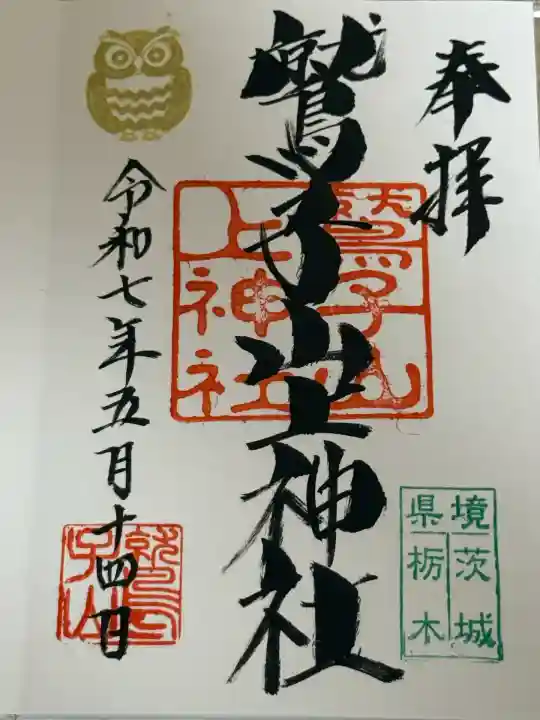 奉拝
鷲子山上神社
鷲子山
上神社
令和七年五月十四日
鷲
子山
境茨城
県栃木